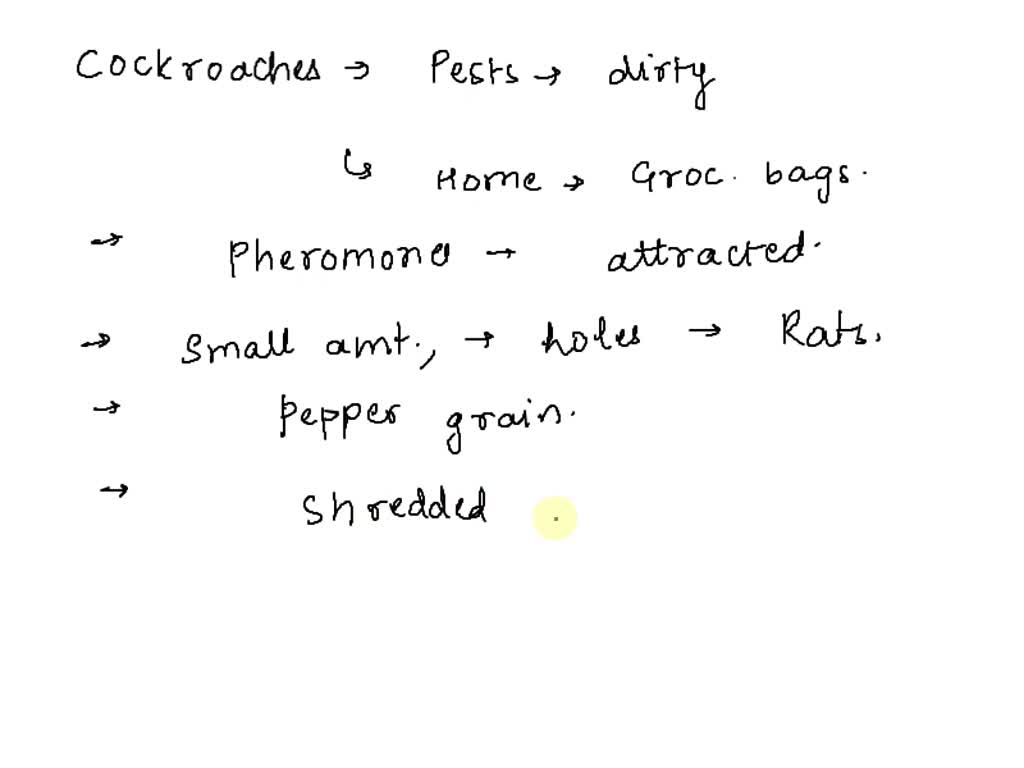 Cockroaches → Pests → dirty
↳ Home → Groc. bags.
→ Pheromone → attracted.
→ Small amt., → holes → Rats.
→ Pepper grain.
→ Shredded